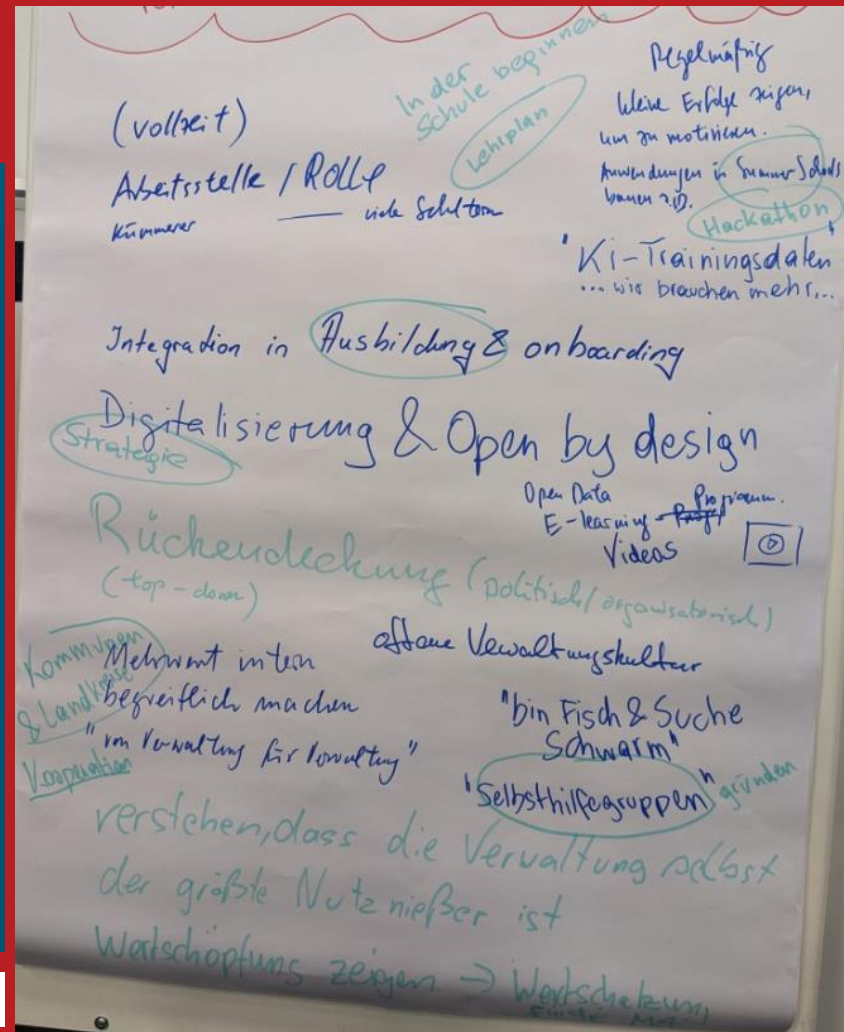 In der
Schule beginnen
Lehrplan
(vollzeit)
Arbeitsstelle / Rolle
Kümmerer — viele Schultern
Regelmäßig
kleine Erfolge zeigen,
um zu motivieren.
Anwendungen in Summer Schools
bauen z.B.
Hackathon
"Ki-Trainingsdaten"
... wir brauchen mehr,..
Integration in Ausbildung & onboarding
Digitalisierung & Open by design
Strategie
Open Data
E-learning - Programm.
Videos
Rückendeckung (politisch/organisatorisch)
(top-down)
offene Verwaltungskultur
Kommunen
& Landkreise
Kooperation
Mehrwert intern
begreiflich machen
"von Verwaltung für Verwaltung"
"bin Fisch & Suche
Schwarm"
"Selbsthilfegruppen" gründen
verstehen, dass die Verwaltung selbst
der größte Nutznießer ist
Wertschöpfung zeigen → Wertschätzung